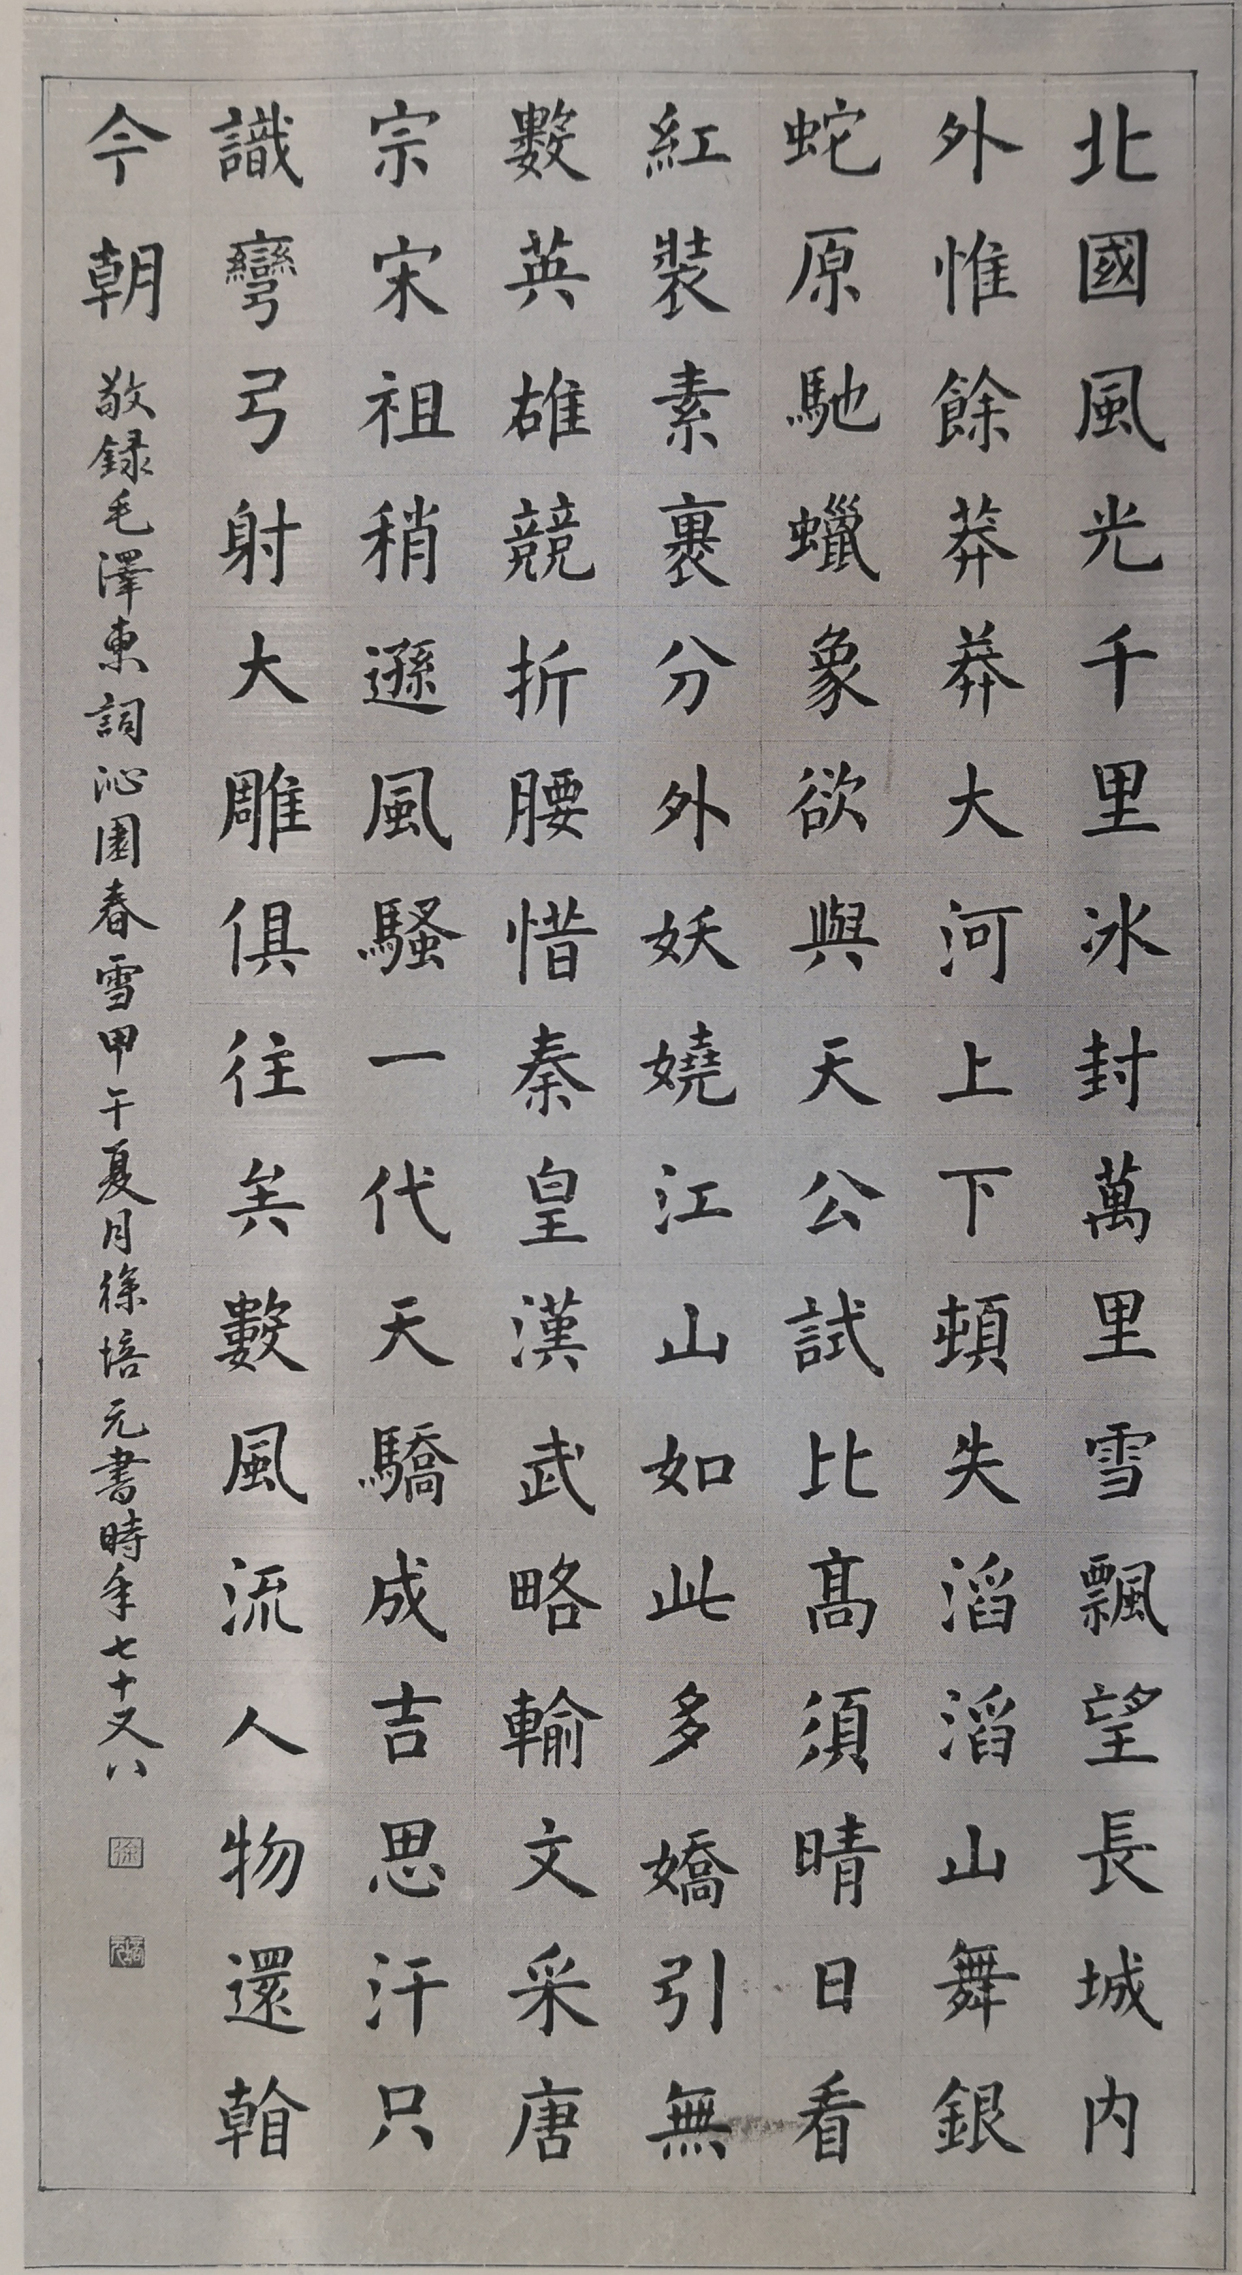 北國風光千里冰封萬里雪飄望長城内
外惟餘莽莽大河上下頓失滔滔山舞銀
蛇原馳蠟象欲與天公試比髙須晴日看
紅裝素裹分外妖嬈江山如此多嬌引無
數英雄競折腰惜秦皇漢武略輸文采唐
宗宋祖稍遜風騷一代天驕成吉思汗只
識彎弓射大雕俱往矣數風流人物還看
今朝
敬録毛澤東詞沁園春雪甲午夏月徐培元書時年七十又八
徐